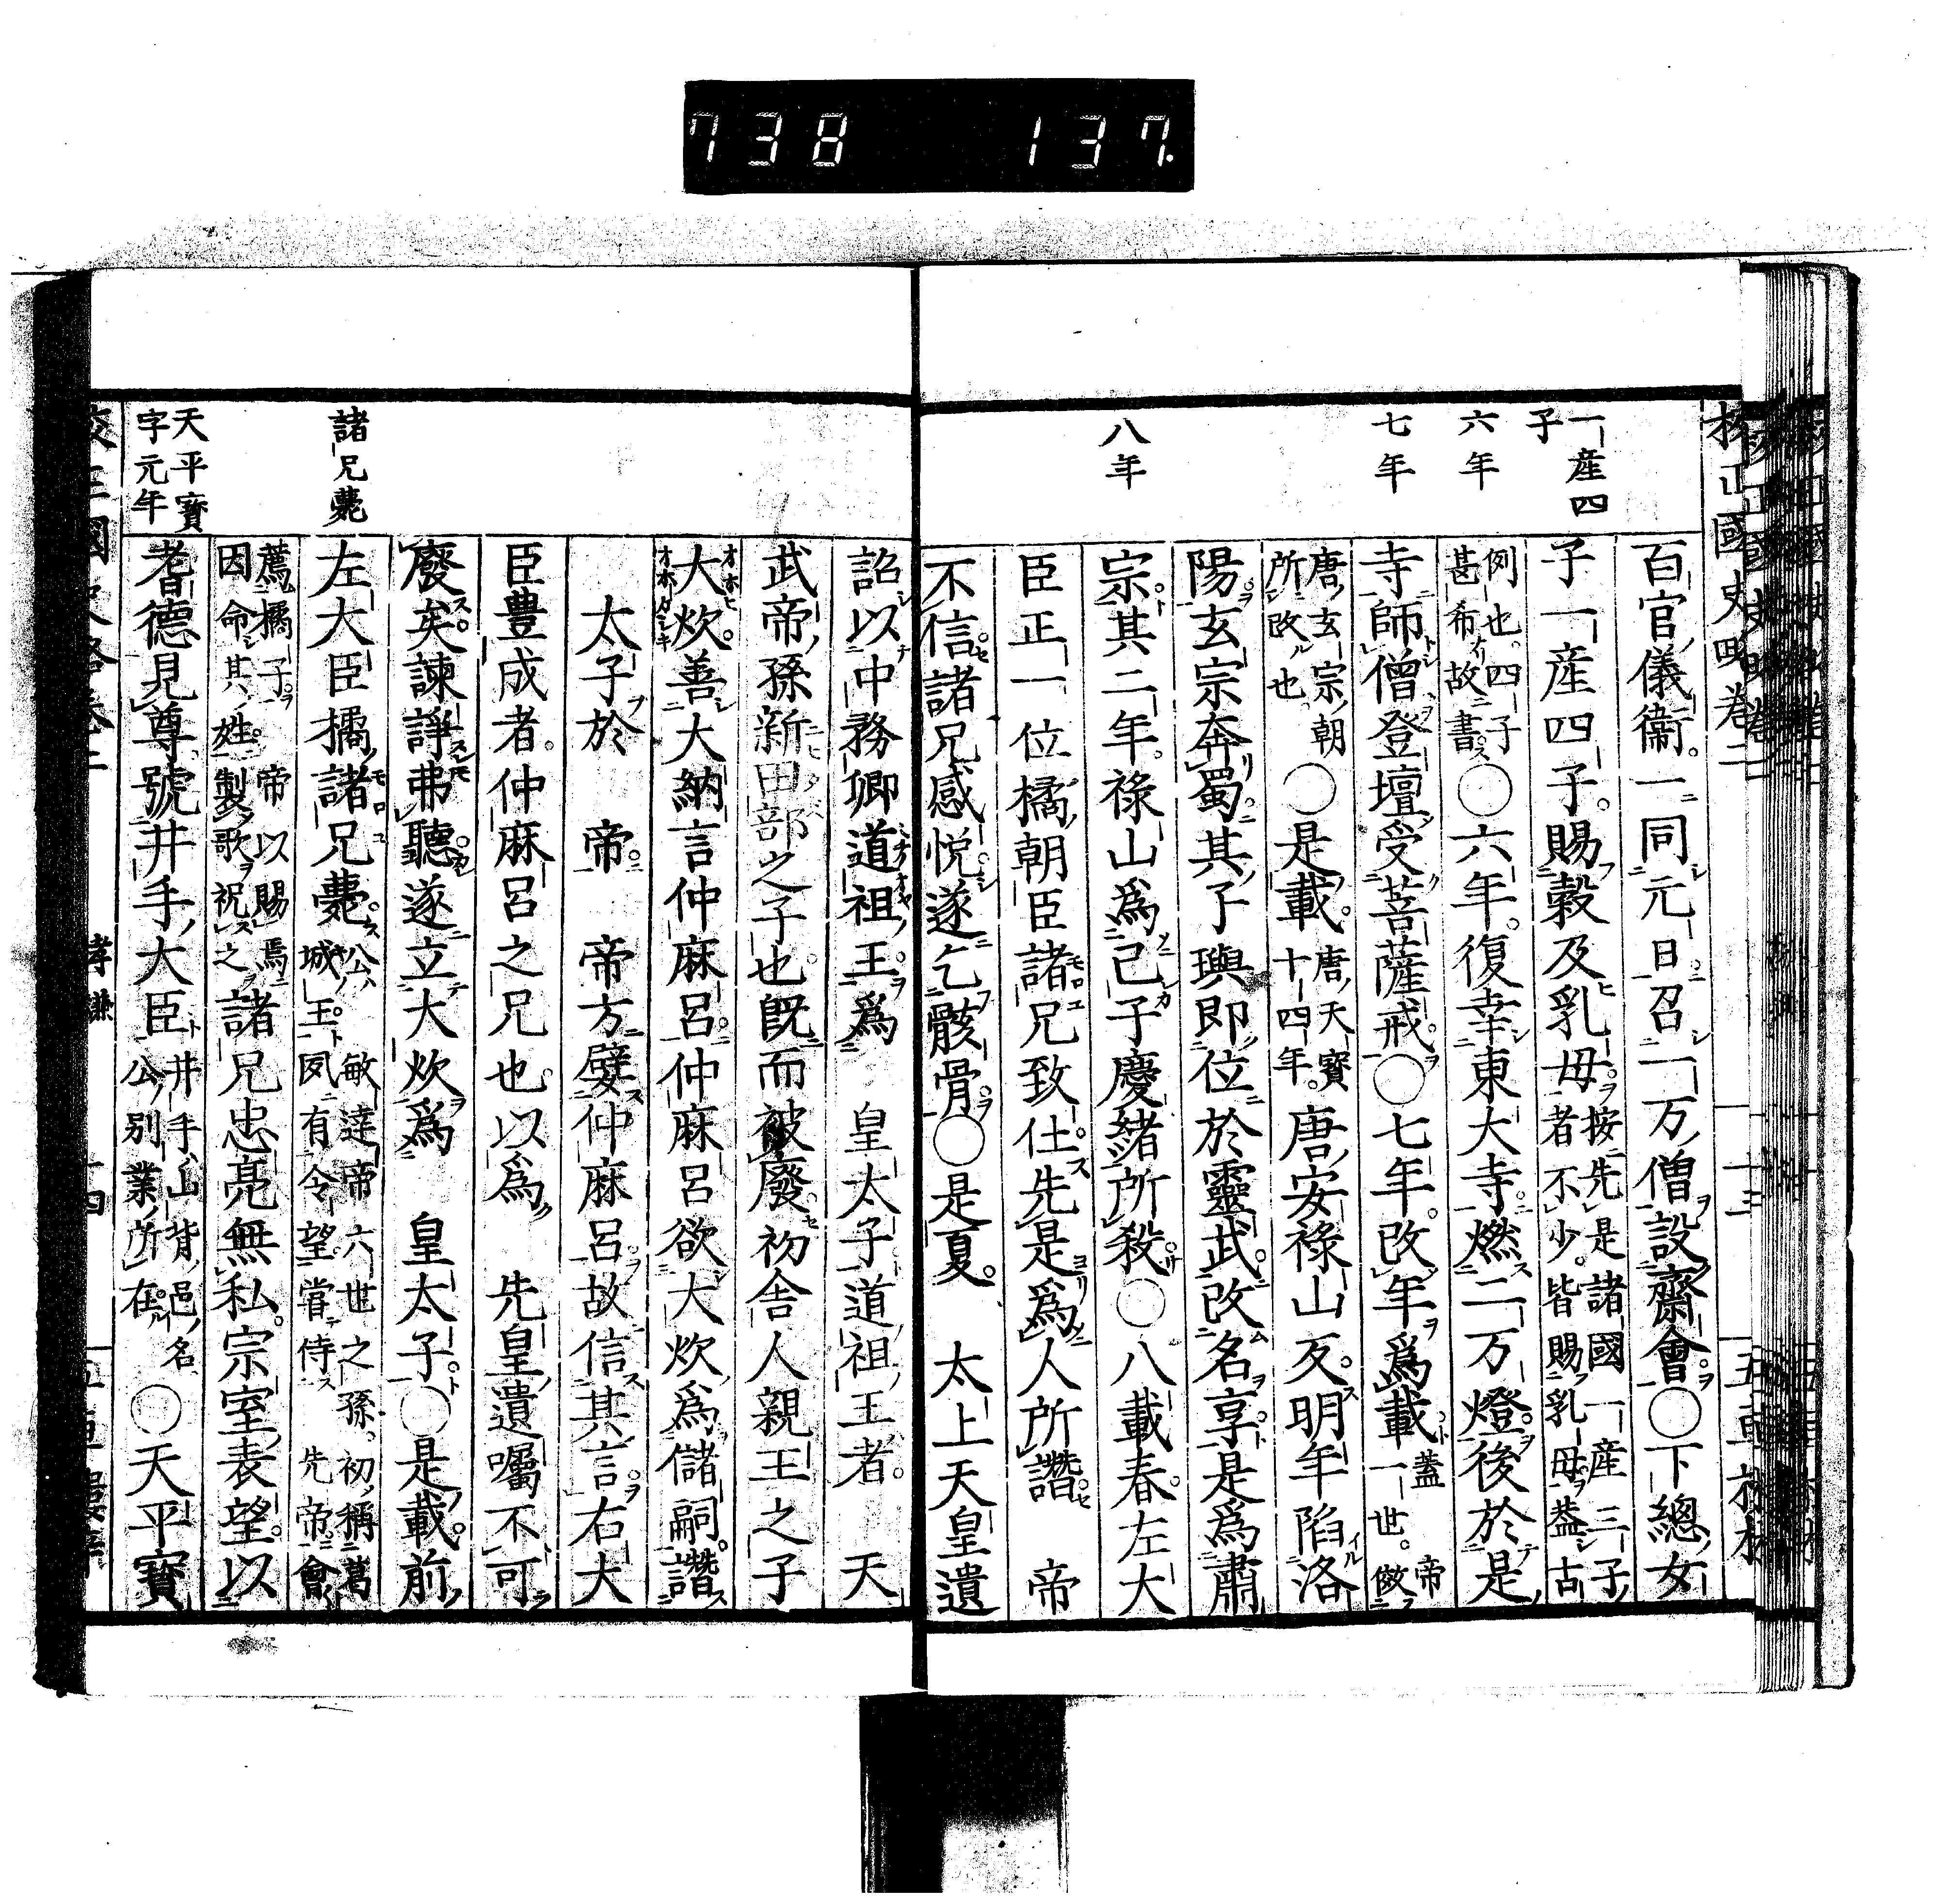 738 137
校正國史略卷二
一產四
子
六年
七年
八年
百官儀衞。一同元日召一万僧設齋會。○下總女
子一產四子。賜穀及乳母。按先是諸國一產三子
者不少。皆賜乳母。蓋古
例也。四子
甚希故書。○六年。復幸東大寺燃二万燈。後於是
寺師僧登壇受菩薩戒。○七年。改年爲載。蓋一世。
帝倣
唐玄宗朝
所改也。○是載。唐天寶
十四年。唐安祿山反。明年陷洛
陽。玄宗奔蜀。其子璵即位於靈武。改名享。是爲肅
宗。其二年。祿山爲己子慶緒所殺。○八載春。左大
臣正一位橘朝臣諸兄致仕。先是爲人所譖。帝
不信。諸兄感悦。遂乞骸骨。○是夏。太上天皇遺
諸兄薨
天平寶
字元年
詔以中務卿道祖王爲皇太子。道祖王者。天
武帝孫新田部之子也。既而被廢。初舍人親王之子
大炊。善大納言仲麻呂。仲麻呂欲大炊爲儲嗣。譖
太子於帝。帝方嬖仲麻呂。故信其言。右大
臣豊成者。仲麻呂之兄也。以爲先皇遺囑。不可
廢矣。諫諍弗聽。遂立大炊爲皇太子。○是載。前
左大臣橘諸兄薨。公
城王。敏達帝六世之孫。初稱葛
夙有令望。嘗侍先帝會
薦橘子。帝以賜焉
因命其姓。製歌祝之。諸兄忠亮無私。宗室表望。以
耆德見尊。號井手大臣。井手山背邑名
公別業所在。○天平寶
孝謙